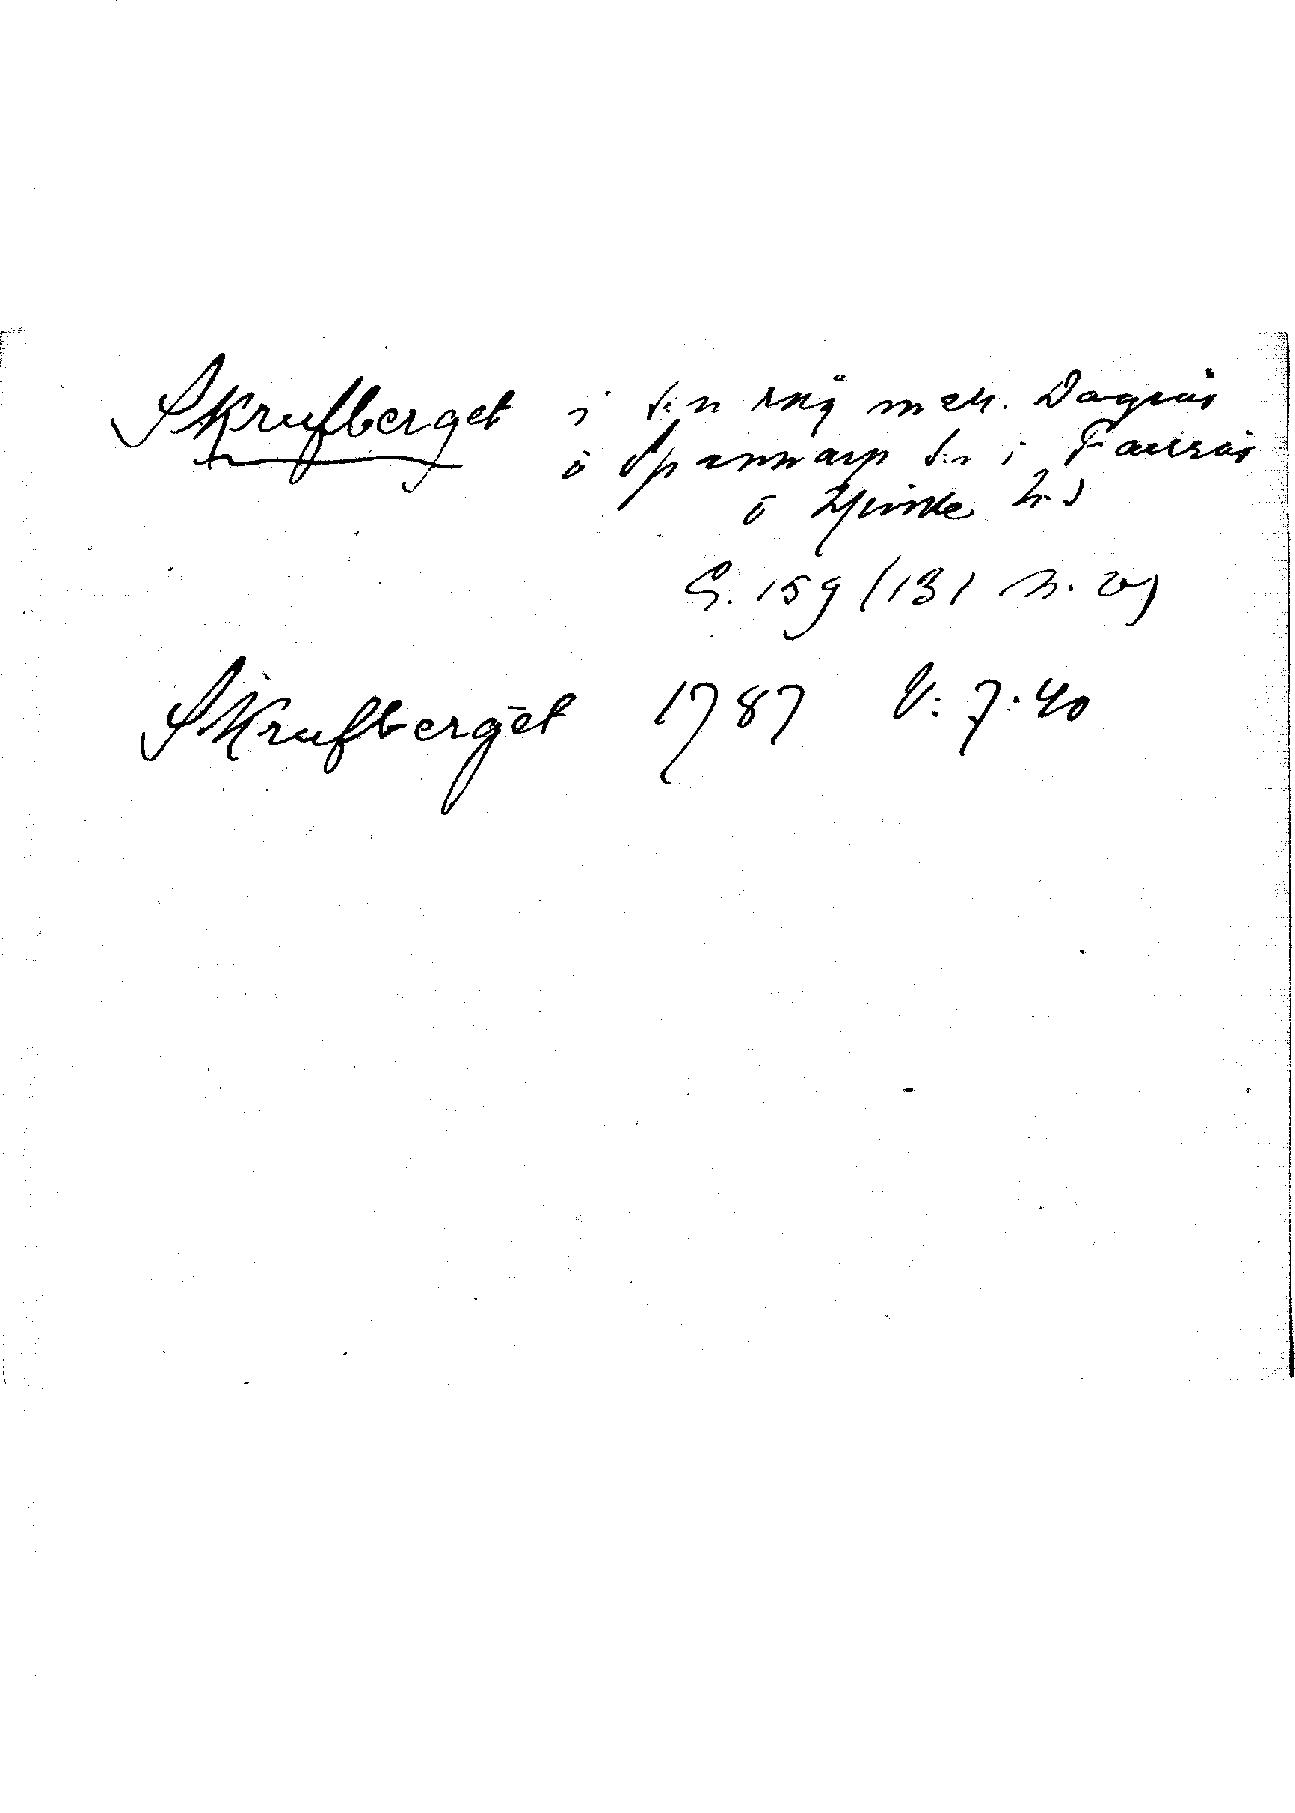 Skrufberget i sn råg mell. Dagsås
o Spannarp sn i Faurås
o Himle hd
S. 159 (131 n. v)
Skrufberget 1787 V: 7.40